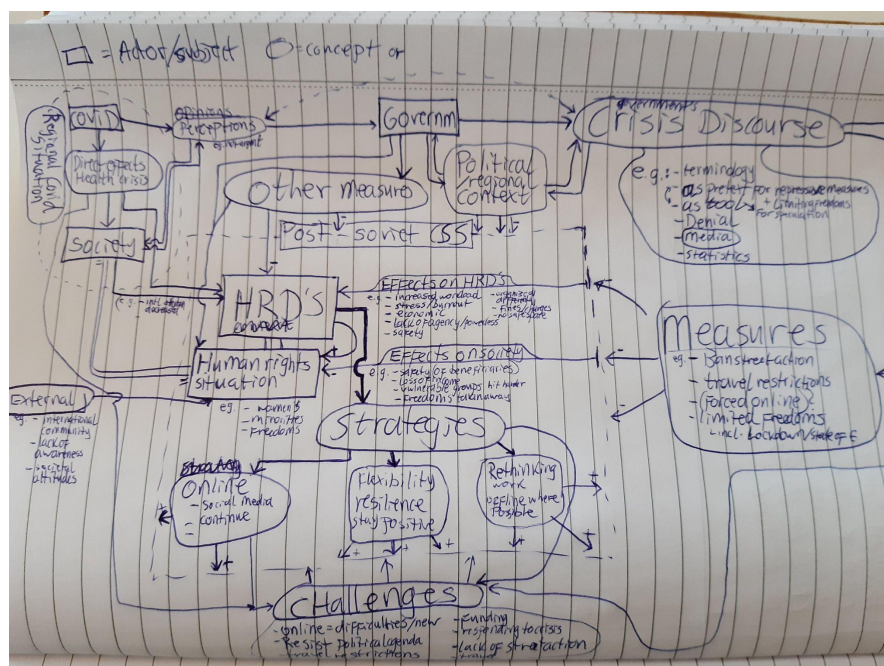 = Actor/subject
=concept or
Regional Covid
situation
COVID
opinions
perceptions
Governm
governments
Crisis Discourse
Direct effects
Health crisis
Other measure
Political
/regional
context
e.g.: - terminology
- as pretext for repressive measures
- as tool + limiting freedoms
for speculation
- Denial
- media
- statistics
Society
Post-soviet CSS
HRD'S
Effects on HRD's
e.g. - increased workload
- stress/burnout
- economic
- lack of agency/powerless
- safety
differently
- fines/charges
- no safe space
Human rights
situation
eg. - women's
- minorities
- Freedoms
Effects on society
e.g. - safety (of beneficiaries)
- loss of income
- vulnerable groups hit harder
- freedoms taken away
Measures
eg. - Ban street action
- travel restrictions
- (Forced online)
- limited Freedoms
- incl. lockdown/state of E
External
eg. - international
community
- lack of
awareness
- societal
attitudes
Strategies
strategy
Online
- social media
- continue
Flexibility
resilience
stay positive
Rethinking
work
offline where
Possible
Challenges
- online = difficulties/new
- Resist political agenda
- travel restrictions
- Funding
- responding to crisis
- lack of street action